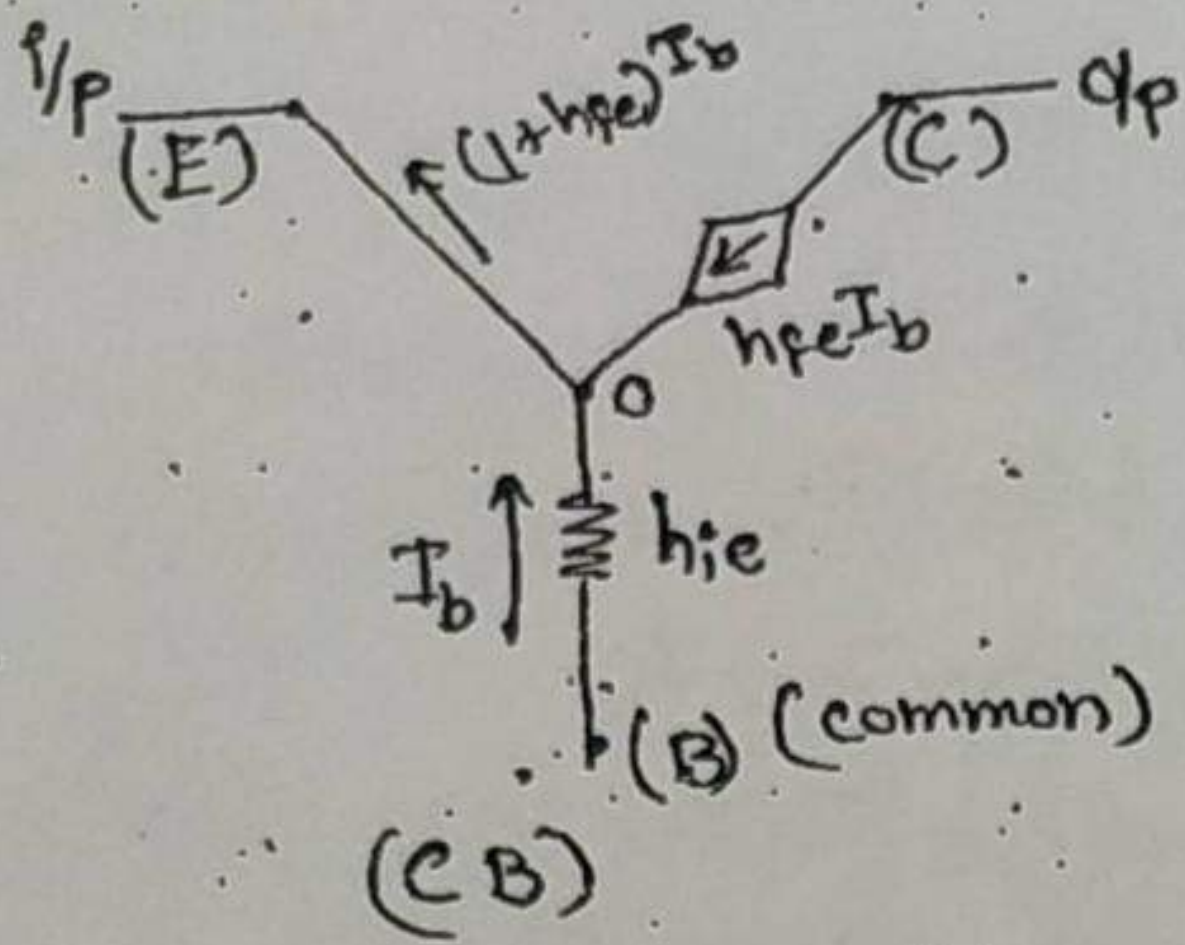 i/p
(E)
(1+hfe)Ib
(C)
o/p
hfeIb
O
Ib
hie
(B) (common)
(CB)